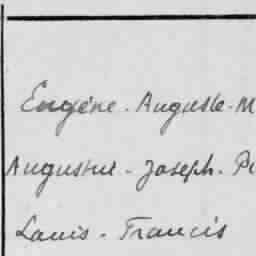 Eugéne - Auguste - M
Augustine - Joseph - Pi
Louis - Francis